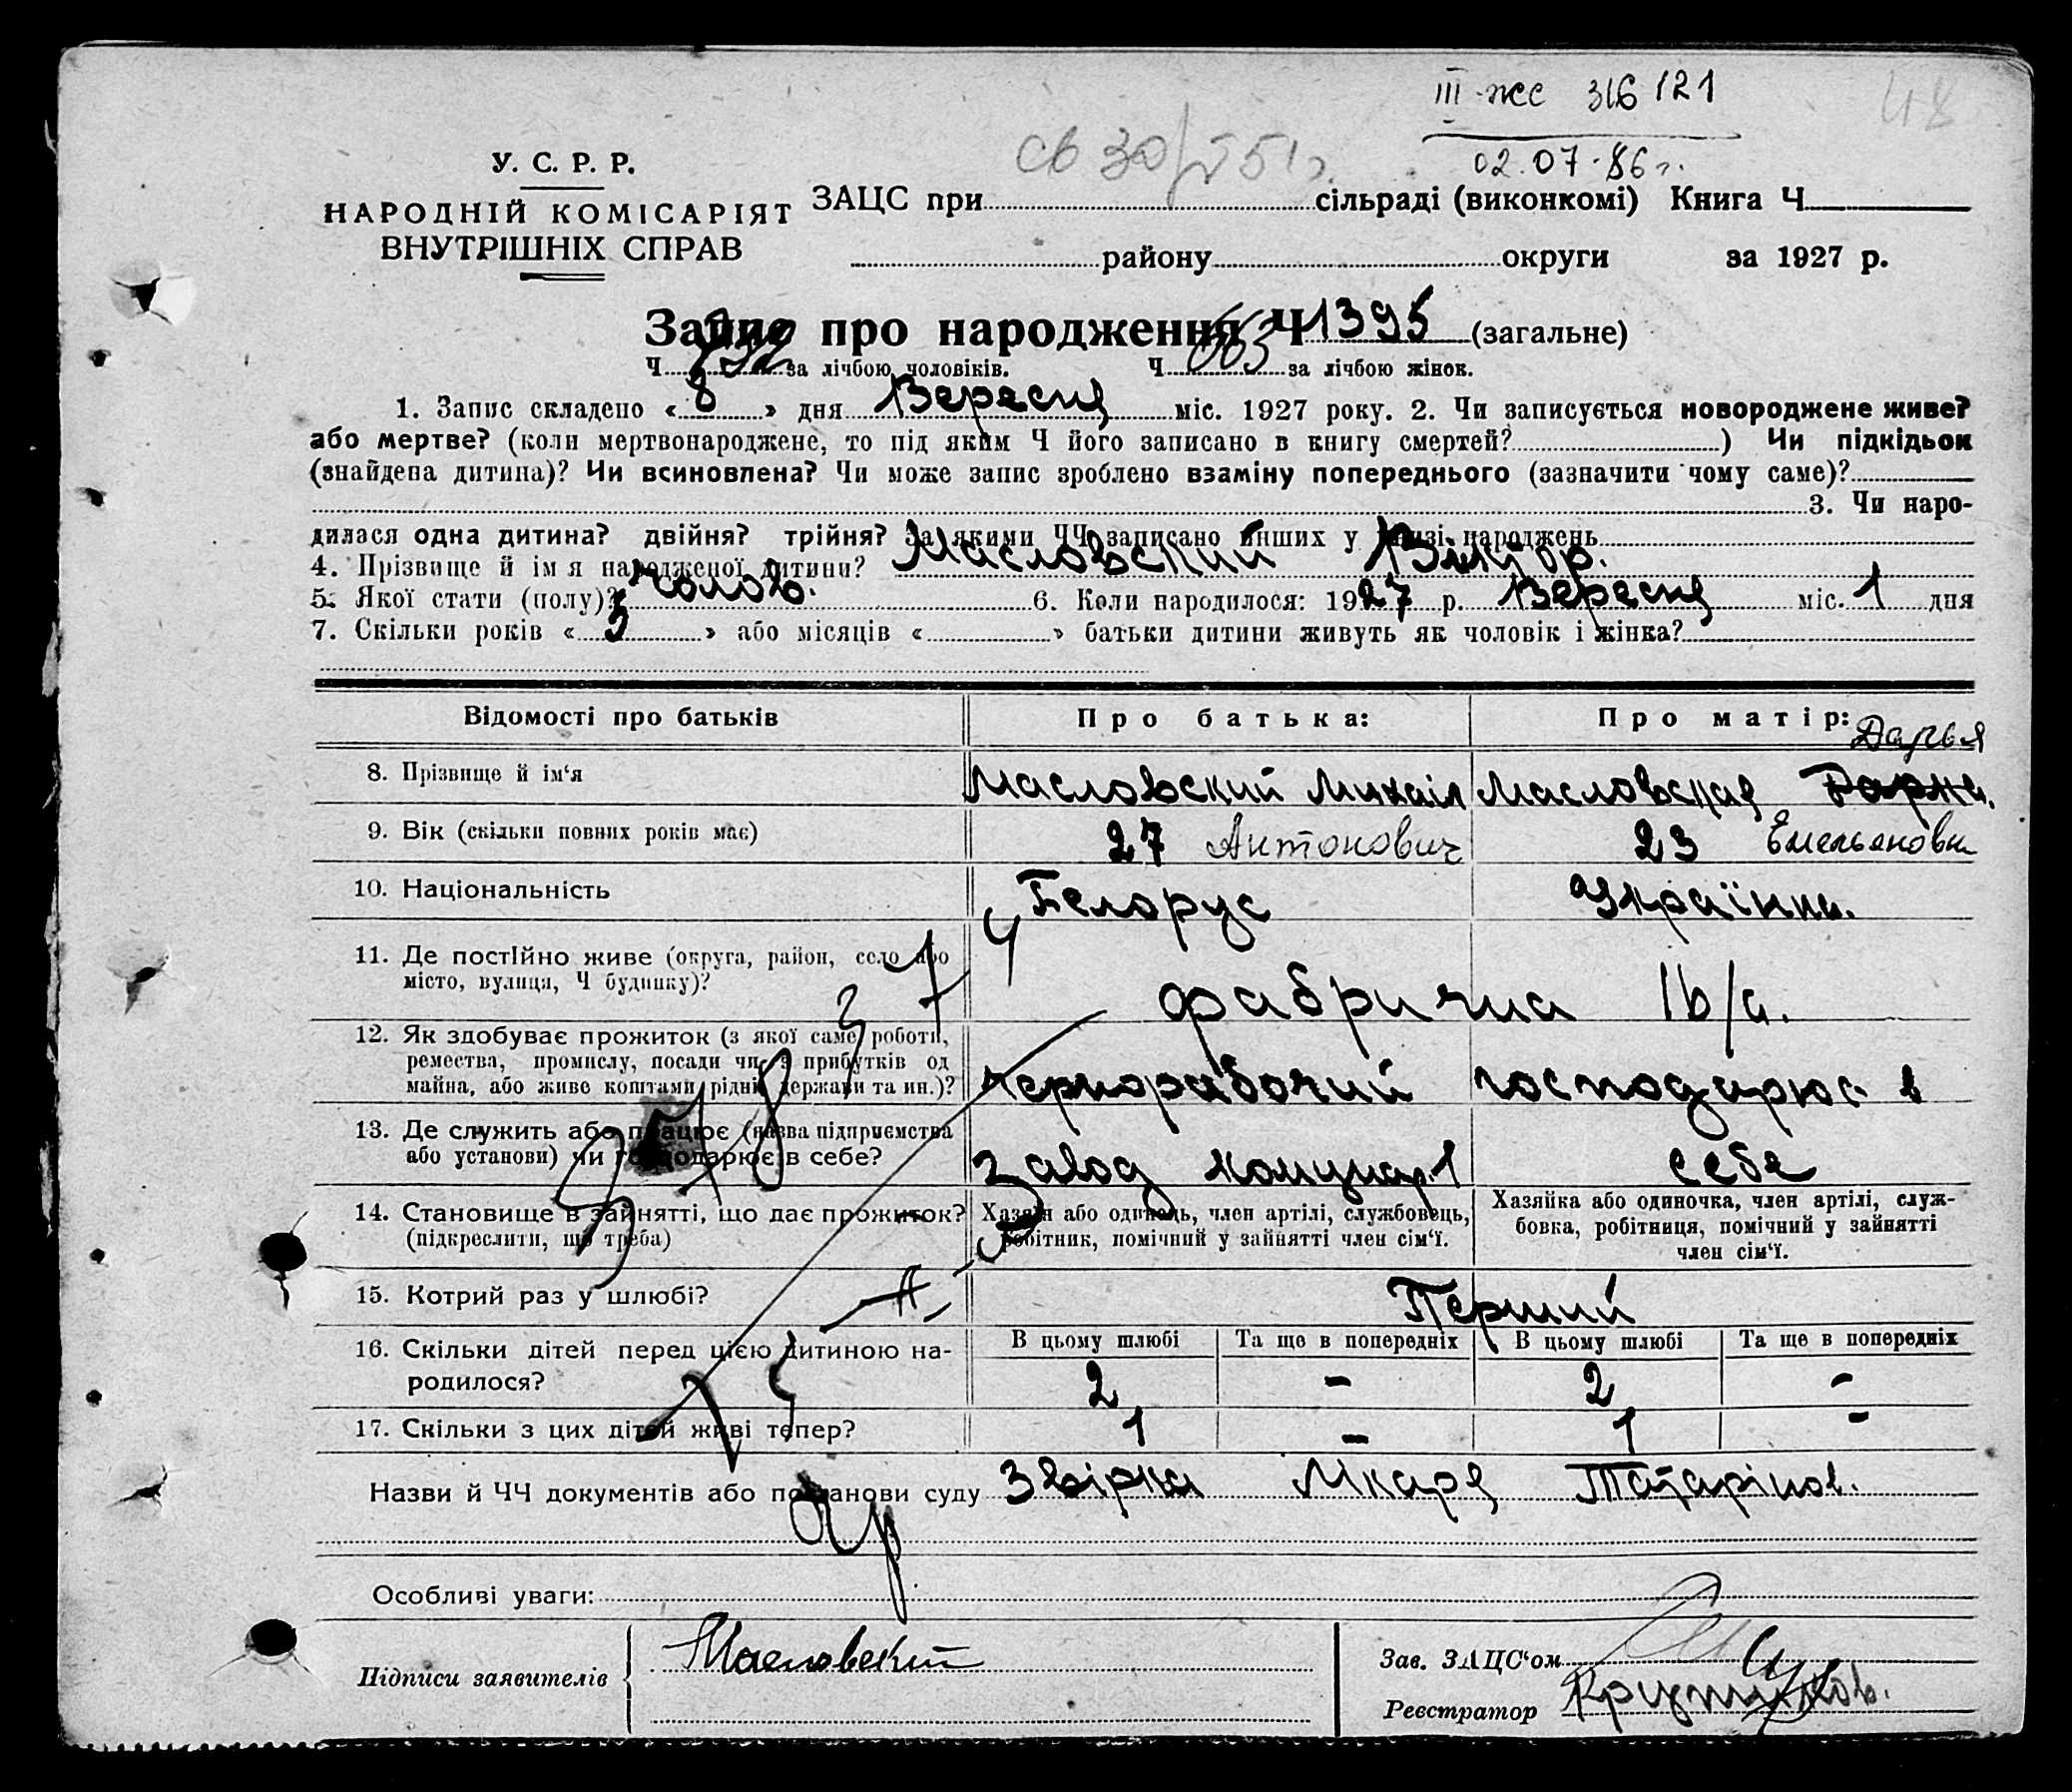 III-жс 316121
48
Св 30/V 51 г.
02.07.86 г.
У. С. Р. Р.
НАРОДНІЙ КОМІСАРІЯТ
ВНУТРІШНІХ СПРАВ
ЗАЦС при сільраді (виконкомі) Книга Ч
району округи за 1927 р.
Запис про народження Ч 1395 (загальне)
Ч 732 за лічбою чоловіків. Ч 663 за лічбою жінок.
1. Запис складено « 8 » дня Вересня міс. 1927 року. 2. Чи записується новороджене живе?
або мертве? (коли мертвонароджене, то під яким Ч його записано в книгу смертей? ) Чи підкідьок
(знайдена дитина)? Чи всиновлена? Чи може запис зроблено взаміну попереднього (зазначити чому саме)?
3. Чи наро-
дилася одна дитина? двійня? трійня? За якими ЧЧ записано инших у книзі народжень
4. Прізвище й ім я народженої дитини? Масловський Віктор.
5. Якої стати (полу)? Чолов. 6. Коли народилося: 1927 р. Вересня міс. 1 дня
7. Скільки років « 5 » або місяців « » батьки дитини живуть як чоловік і жінка?
Відомості про батьків Про батька: Про матір: Дарья
8. Прізвище й ім'я Масловський Михаіл Масловская Дарья.
9. Вік (скільки повних років має) 27 Антонович 23 Емельяновн
10. Національність Белорус Українка.
11. Де постійно живе (округа, район, село або
місто, вулиця, Ч будинку)?
фабрична 16/а.
12. Як здобуває прожиток (з якої саме роботи,
ремества, промислу, посади чи з прибутків од
майна, або живе коштами рідні, держави та ин.)?
чернорабочий господарює в
13. Де служить або працює (назва підприємства
або установи) чи господарює в себе?
завод комунар 1 себе
14. Становище в зайнятті, що дає прожиток?
(підкреслити, що треба)
Хазяїн або одинець, член артілі, службовець,
робітник, помічний у зайнятті член сім'ї.
Хазяйка або одиночка, член артілі, служ-
бовка, робітниця, помічний у зайнятті
член сім'ї.
15. Котрий раз у шлюбі? Перший
16. Скільки дітей перед цією дитиною на-
родилося?
В цьому шлюбі Та ще в попередніх В цьому шлюбі Та ще в попередніх
2 - 2 -
17. Скільки з цих дітей живі тепер? 1 - 1 -
Назви й ЧЧ документів або постанови суду Звірка Лікаря Татарінов.
Особливі уваги:
Підписи заявителів Масловский
Зав. ЗАЦС'ом
Реєстратор